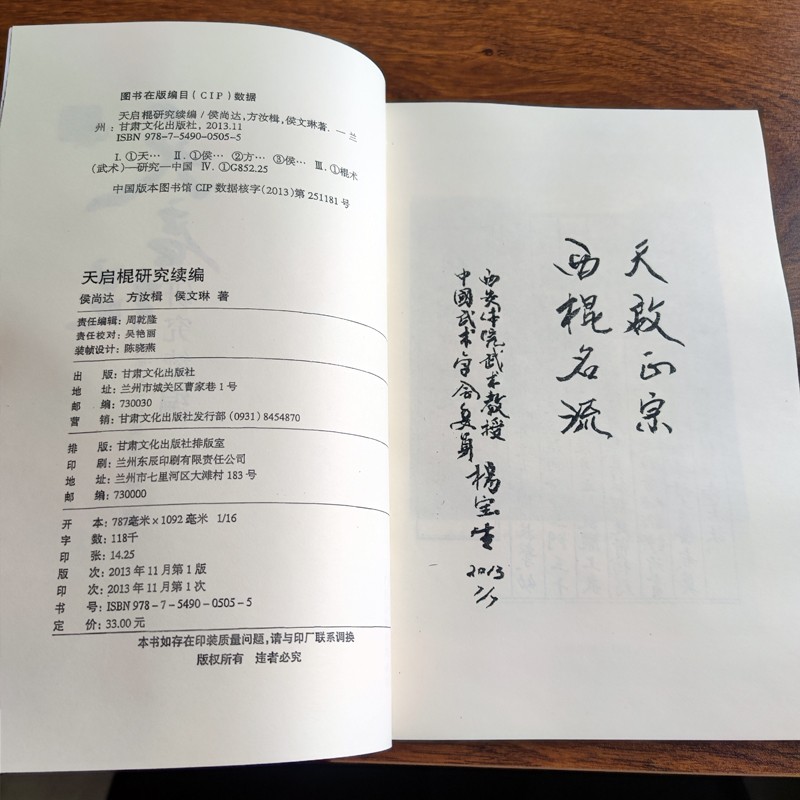 图书在版编目(CIP)数据
天启棍研究续编/侯尚达,方汝楫,侯文琳著. —兰
州:甘肃文化出版社,2013.11
ISBN 978-7-5490-0505-5
Ⅰ.①天… Ⅱ.①侯… ②方… ③侯… Ⅲ.①棍术
(武术)—研究—中国 Ⅳ.①G852.25
中国版本图书馆CIP数据核字(2013)第251181号
天启棍研究续编
侯尚达 方汝楫 侯文琳 著
责任编辑:周乾隆
责任校对:吴艳丽
装帧设计:陈晓燕
出 版:甘肃文化出版社
地 址:兰州市城关区曹家巷1号
邮 编:730030
营 销:甘肃文化出版社发行部(0931)8454870
排 版:甘肃文化出版社排版室
印 刷:兰州东辰印刷有限责任公司
地 址:兰州市七里河区大滩村183号
邮 编:730000
开 本:787毫米×1092毫米 1/16
字 数:118千
印 张:14.25
版 次:2013年11月第1版
印 次:2013年11月第1次
书 号:ISBN 978-7-5490-0505-5
定 价:33.00元
本书如存在印装质量问题,请与印厂联系调换
版权所有 违者必究
天啟正宗
西棍名流
西安体院武术教授
中國武术学会委員
楊宝生
2013